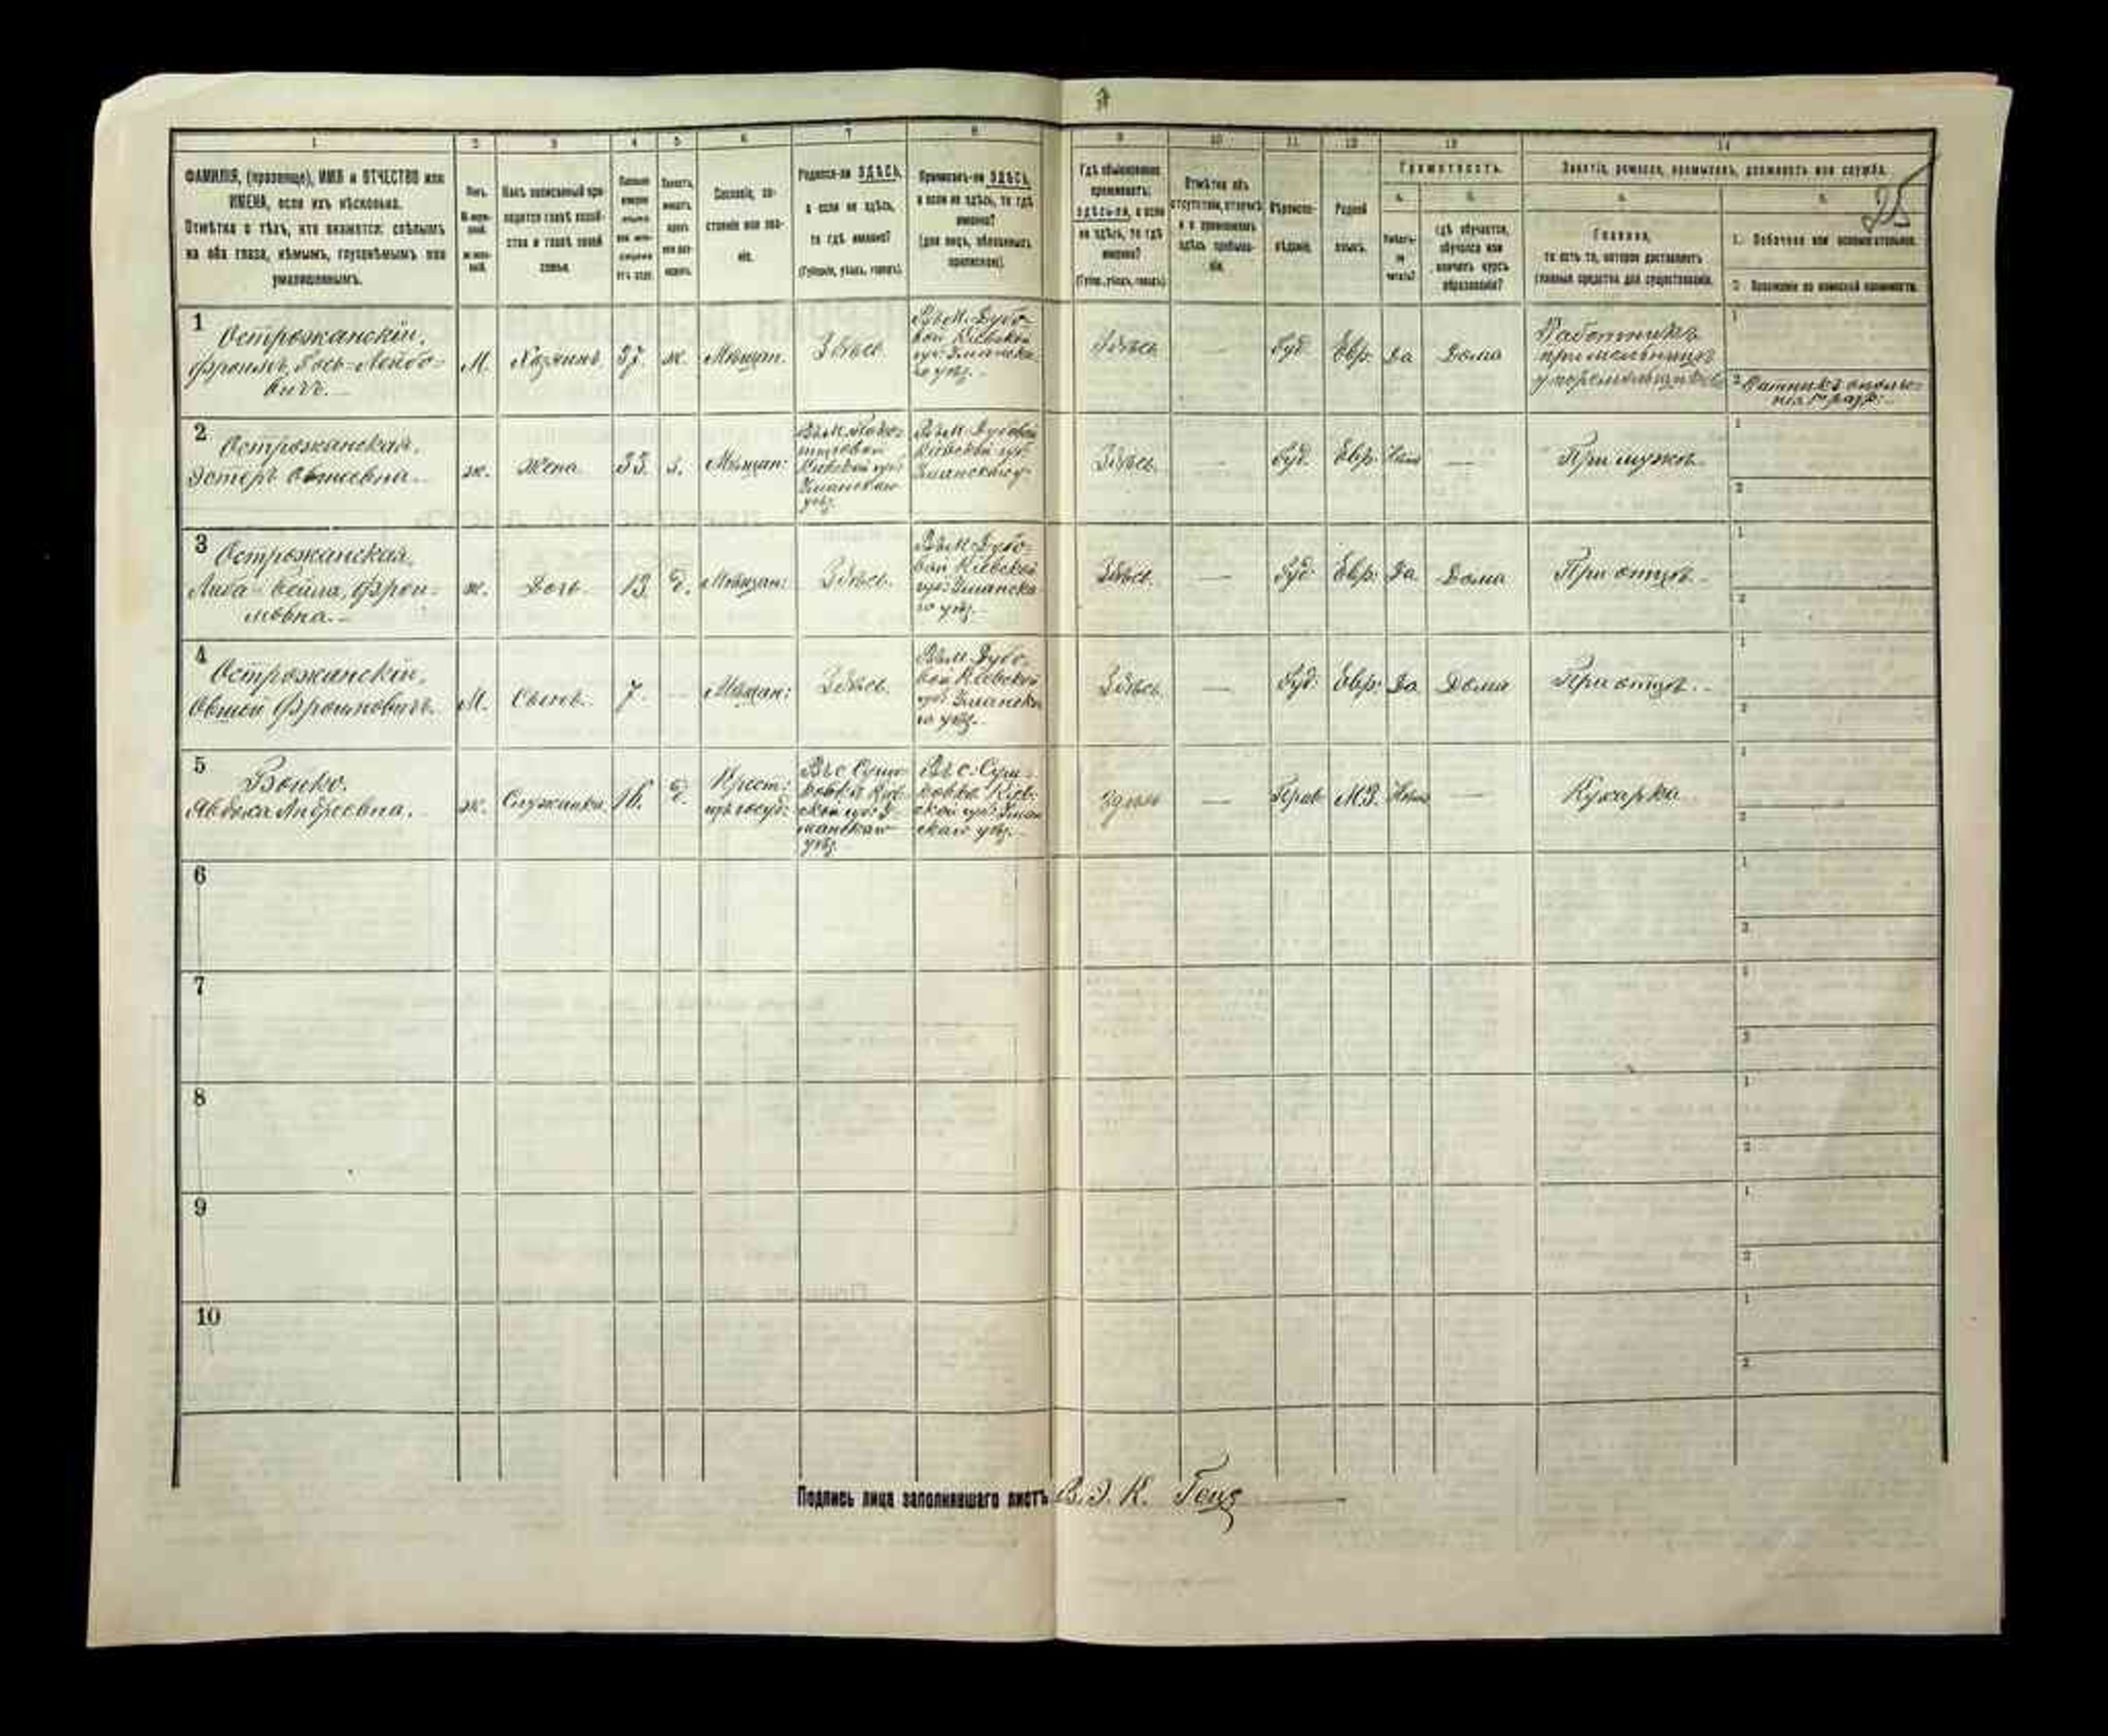 1 2 3 4 5 6 7 8 9 10 11 12 13 14
25
ФАМИЛІЯ, (прозвище), ИМЯ и ОТЧЕСТВО или
ИМЕНА, если ихъ нѣсколько.
Отмѣтка о тѣхъ, кто окажется: слѣпымъ
на оба глаза, нѣмымъ, глухонѣмымъ или
умалишеннымъ.
Полъ.
Какъ записанный при-
ходится главѣ хозяй-
ства и главѣ своей
семьи.
Сословіе, со-
стояніе или зва-
ніе.
Родился-ли ЗДѢСЬ,
а если не здѣсь,
то гдѣ именно?
(Губернія, уѣздъ, городъ).
Приписанъ-ли ЗДѢСЬ,
а если не здѣсь, то гдѣ
именно?
(для лицъ, обязанныхъ
припиской).
Гдѣ обыкновенно
проживаетъ:
здѣсь-ли, а если
не здѣсь, то гдѣ
именно?
(Губер., уѣздъ, городъ)
Отмѣтка объ
отсутствіи, отлучкѣ
и о временномъ
здѣсь пребыва-
ніи.
Вѣроиспо-
вѣданіе.
Родной
языкъ.
Грамотность.
а.
Умѣетъ-
ли
читать?
б.
гдѣ обучается,
обучался или
кончилъ курсъ
образованія?
Занятіе, ремесло, промыселъ, должность или служба.
а.
Главное,
то есть то, которое доставляетъ
главныя средства для существованія.
б.
1. Побочное или вспомогательное.
2. Положеніе по воинской повинности.
1
Острожанскій,
Фроимъ, Іось-Лейбо-
вичъ.
М.
Хозяинъ
37.
ж.
Мѣщан.
Здѣсь
Въ М. Дубо-
вой Кіевской
губ: Уманска-
го уѣз.
Здѣсь
—
Іуд.
Евр.
Да
Дома
Работникъ
при мельницѣ
1
2 Ратникъ ополче-
нія 1го разр:
2
Острожанская,
Эстеръ Овшеевна.
ж.
Жена
33.
з.
Мѣщан:
Кіевской губ:
Уманскаго
уѣз.
Въ М. Дубовой
Кіевской губ:
Уманскаго у.
Здѣсь.
—
Іуд.
Евр:
Нѣтъ
—
При мужѣ.
1
2
3
Острожанская,
Фрои-
мовна.
ж.
Дочь
13.
Д.
Мѣщан:
Здѣсь.
Въ М. Дубо-
вой Кіевской
губ: Уманска-
го уѣз.
Здѣсь.
—
Іуд:
Евр:
Да
Дома
При отцѣ.
1
2
4
Острожанскій,
Овшей Фроимовичъ.
М.
Сынъ.
7.
—
Мѣщан:
Здѣсь.
Въ М. Дубо-
вой Кіевской
губ: Уманска-
го уѣз.
Здѣсь
—
Іуд:
Евр:
Да
Дома
При отцѣ.
1
2
5
Авдоха Андреевна.
ж.
Служанка
16.
Д.
Крест:
изъ госуд:
Въ с. Суш-
ковкѣ Кіев-
ской губ: У-
манскаго
уѣз.
Въ с. Суш-
ковкѣ Кіев-
ской губ: Уман-
скаго уѣз.
Здѣсь
—
Прав.
М3.
Нѣтъ
—
Кухарка
1
2
6
1
2
7
1
2
8
1
2
9
1
2
10
1
2
Подпись лица заполнившаго листъ